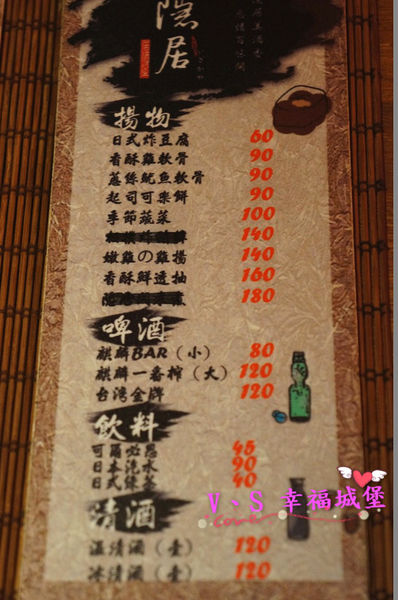 隱居
揚物
日式炸豆腐 60
香酥雞軟骨 90
蔥絲魷魚軟骨 90
起司可樂餅 90
季節蔬菜 100
140
嫩雞の雞揚 140
香酥鮮透抽 160
180
啤酒
麒麟BAR（小） 80
麒麟一番榨（大） 120
台灣金牌 120
飲料
可爾必思 45
日本汽水 90
日式綠茶 40
清酒
溫清酒（壺） 120
冰清酒（壺） 120
V、S 幸福城堡